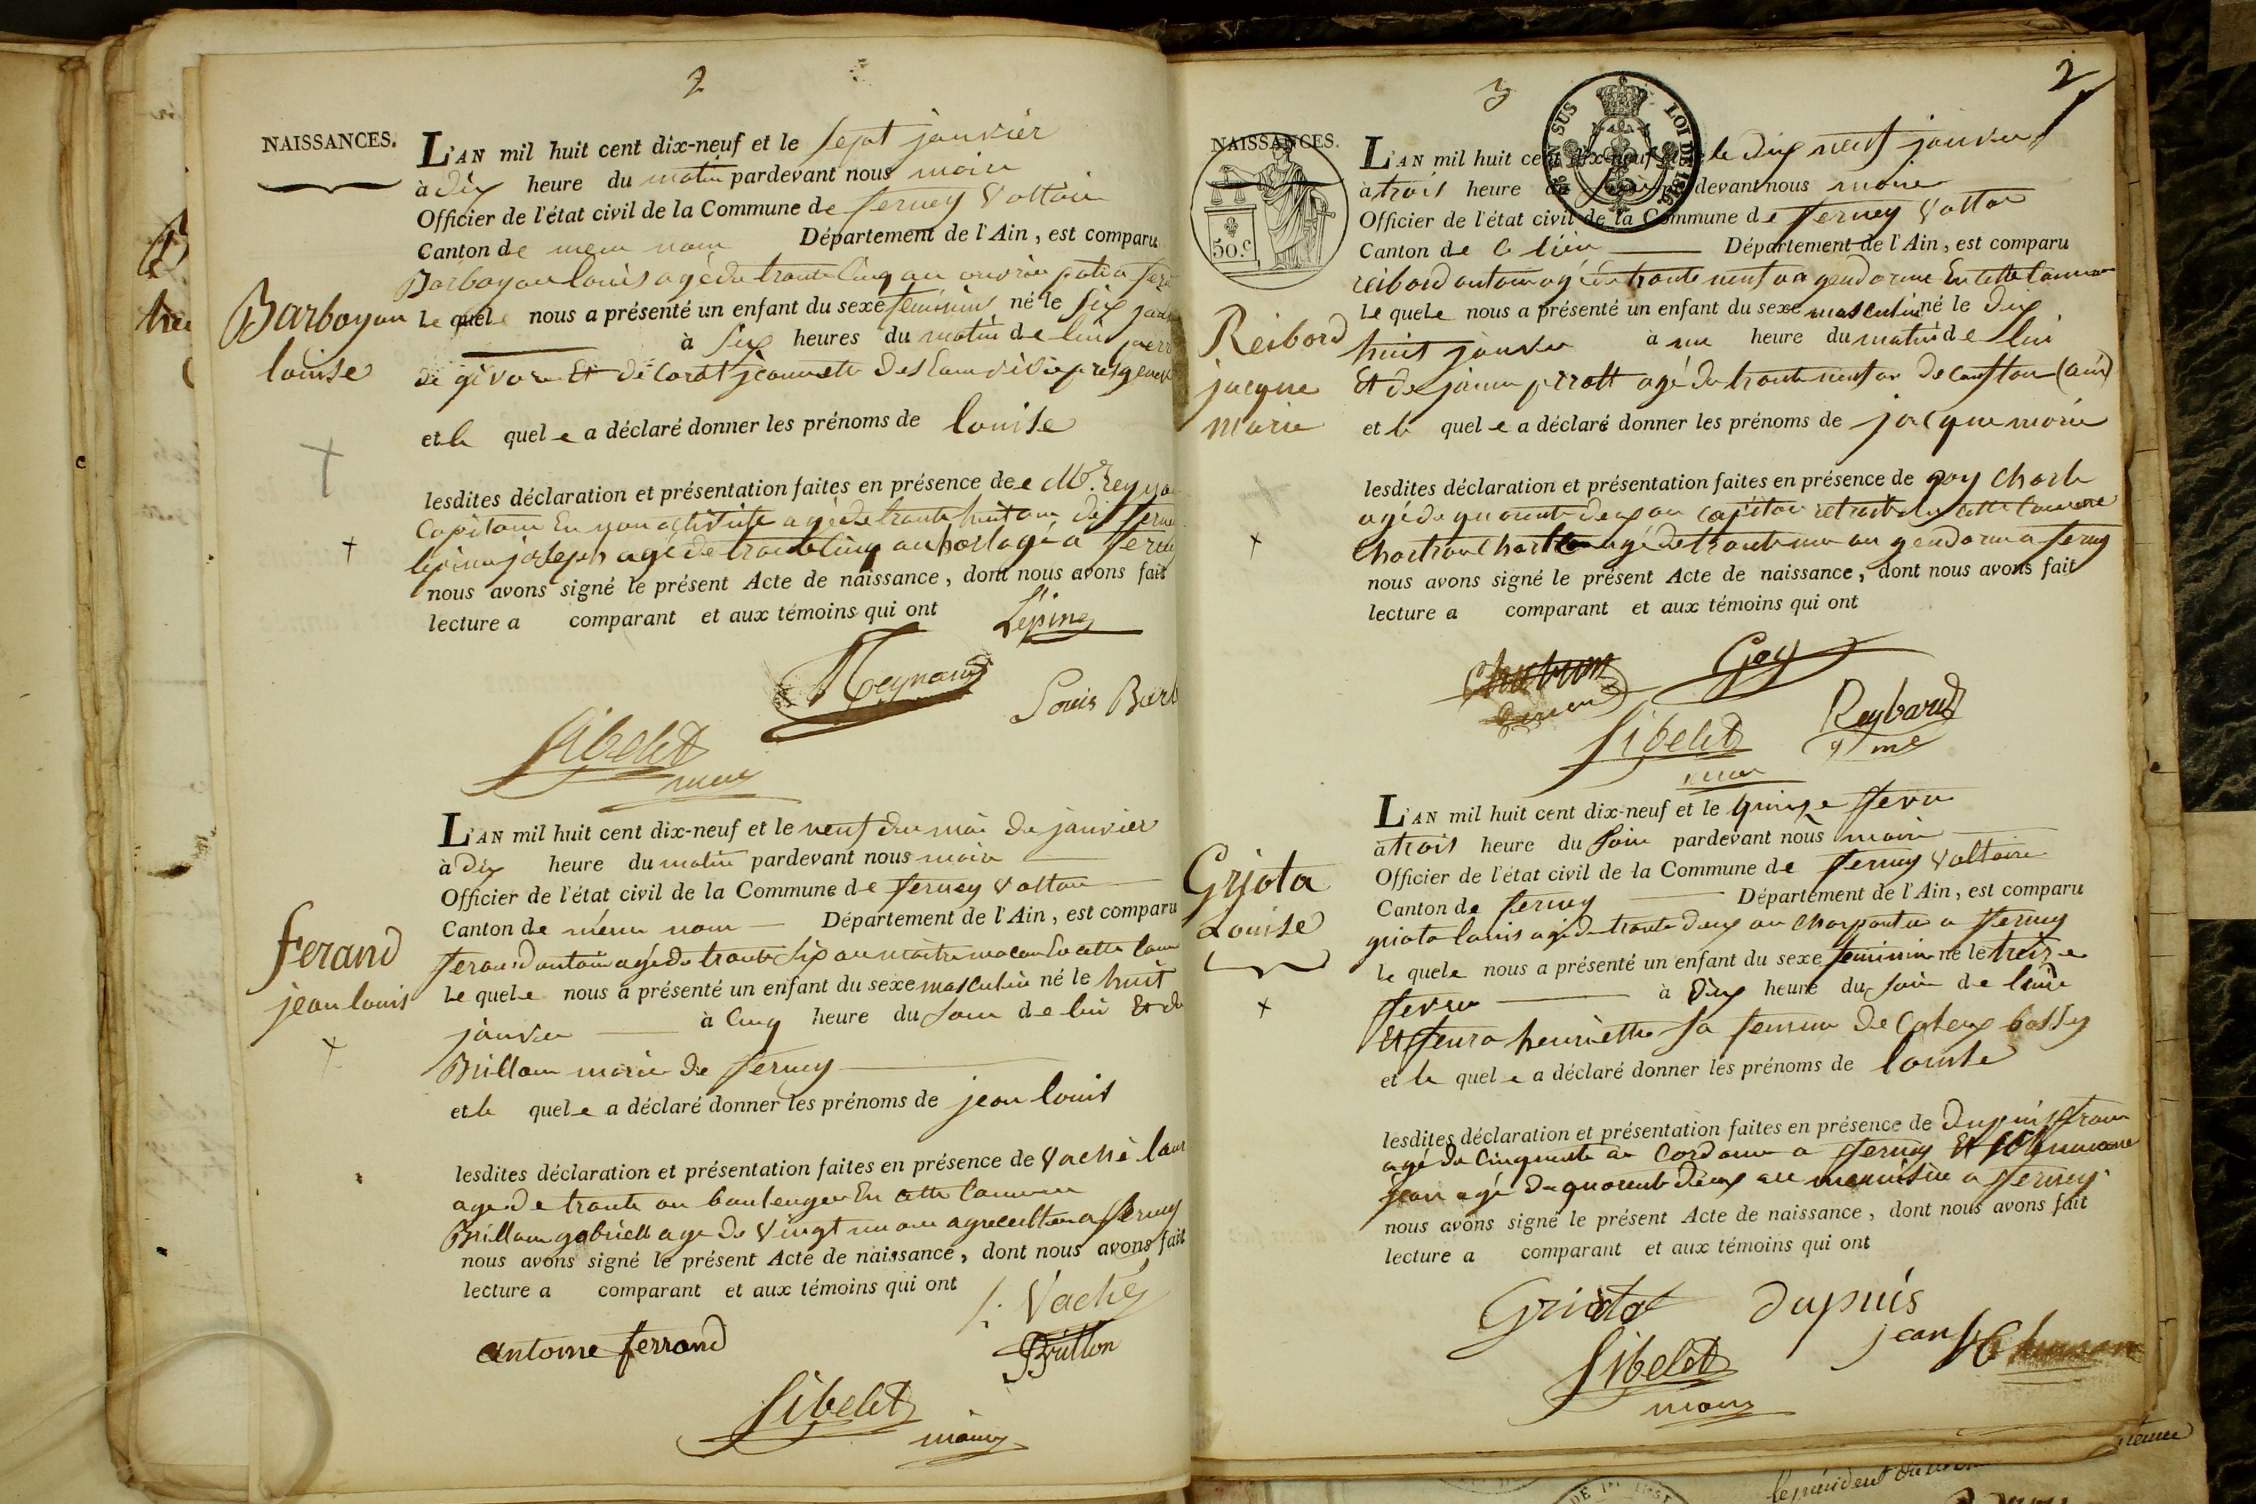 2
NAISSANCES.
L'AN mil huit cent dix-neuf et le sept janvier
à dix heure du matin pardevant nous maire
Officier de l'état civil de la Commune de ferney Voltaire
Canton de meme nom Département de l'Ain, est comparu
Barboyou louis agé de trante cinq an ouvrier potie a
Barboyou
louise
le quele nous a présenté un enfant du sexe feminin né le six
à six heures du matin de lui
de givors Et de jeannette
et le quel e a déclaré donner les prénoms de louise
lesdites déclaration et présentation faites en présence de Mr.
Capitaine En non activite agé de trante huit ans de
lepine joseph agé de trante cinq an horlogé a
nous avons signé le présent Acte de naissance, dont nous avons fait
lecture a comparant et aux témoins qui ont
Lépine
Reynaud
Louis Barb
Sibelet
maire
L'AN mil huit cent dix-neuf et le neuf du moi de janvier
à dix heure du matin pardevant nous maire
Officier de l'état civil de la Commune de ferney Voltaire
Canton de même nom Département de l'Ain, est comparu
ferand antoine agé de trante six an maitre macon En cette
ferand
jean louis
le quele nous a présenté un enfant du sexe masculin né le huit
janvier à cinq heure du soir de lui Et de
Brillon marie de ferney
et le quel e a déclaré donner les prénoms de jean louis
lesdites déclaration et présentation faites en présence de Vaché
age de trante an boulenger En cette Commune
Brillon gabriell age de vingt un an agriculteur a ferney
nous avons signé le présent Acte de naissance, dont nous avons fait
lecture a comparant et aux témoins qui ont
Vaché
antoine ferrand
Brillon
Sibelet
maire
3
2
SUS LOI DE 1816
NAISSANCES.
50.c
L'AN mil huit cent dix-neuf et le dix neuf janvier
à trois heure du soir pardevant nous maire
Officier de l'état civil de la Commune de ferney Voltaire
Canton de ce lieu Département de l'Ain, est comparu
reibord antoine agé de trante neuf an gendarme En cette Commune
Reibord
jacque
marie
le quele nous a présenté un enfant du sexe masculin né le dix
huit janvier à un heure du matin de lui
Et de agé de trante neuf an de (ain)
et le quel e a déclaré donner les prénoms de jacque marie
lesdites déclaration et présentation faites en présence de goy Charle
agé de quarante deux an capitaine retraité de cette Commune
agé de trante un an gendarme a ferney
nous avons signé le présent Acte de naissance, dont nous avons fait
lecture a comparant et aux témoins qui ont
Goy
Reybaud
Sibelet
maire
L'AN mil huit cent dix-neuf et le quinze fevrie
a trois heure du soir pardevant nous maire
Officier de l'état civil de la Commune de ferney Voltaire
Canton de ferney Département de l'Ain, est comparu
griota louis agé de trante deux an charpantier a ferney
Griota
Louise
le quele nous a présenté un enfant du sexe feminin né le treize
fevrie à dix heure du soir de lui
Et henriette sa femme de bossy
et le quel e a déclaré donner les prénoms de louise
lesdites déclaration et présentation faites en présence de Dupuis
agé de cinquante an cordonie a ferney Et
jean agé de quarente deux an menuisie a ferney.
nous avons signé le présent Acte de naissance, dont nous avons fait
lecture a comparant et aux témoins qui ont
Griota
dupuis
jean
Sibelet
maire